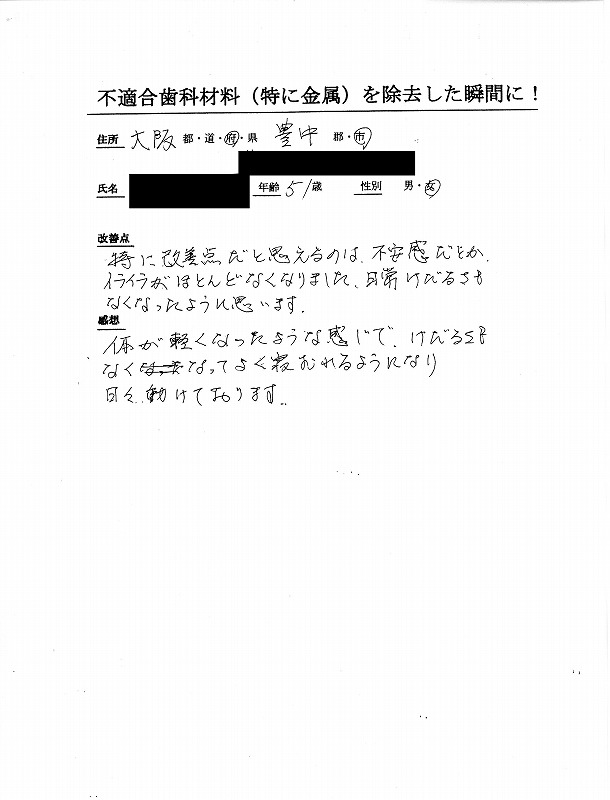 不適合歯科材料（特に金属）を除去した瞬間に！
住所 大阪 都・道・府・県 豊中 郡・市
氏名 年齢 51歳 性別 男・女
改善点
特に改善点だと思えるのは、不安感だとか、
イライラがほとんどなくなりました、日常けだるさも
なくなったように思います。
感想
体が軽くなったような感じで、けだるさも
なくなってよく寝むれるようになり
日々、動けております。